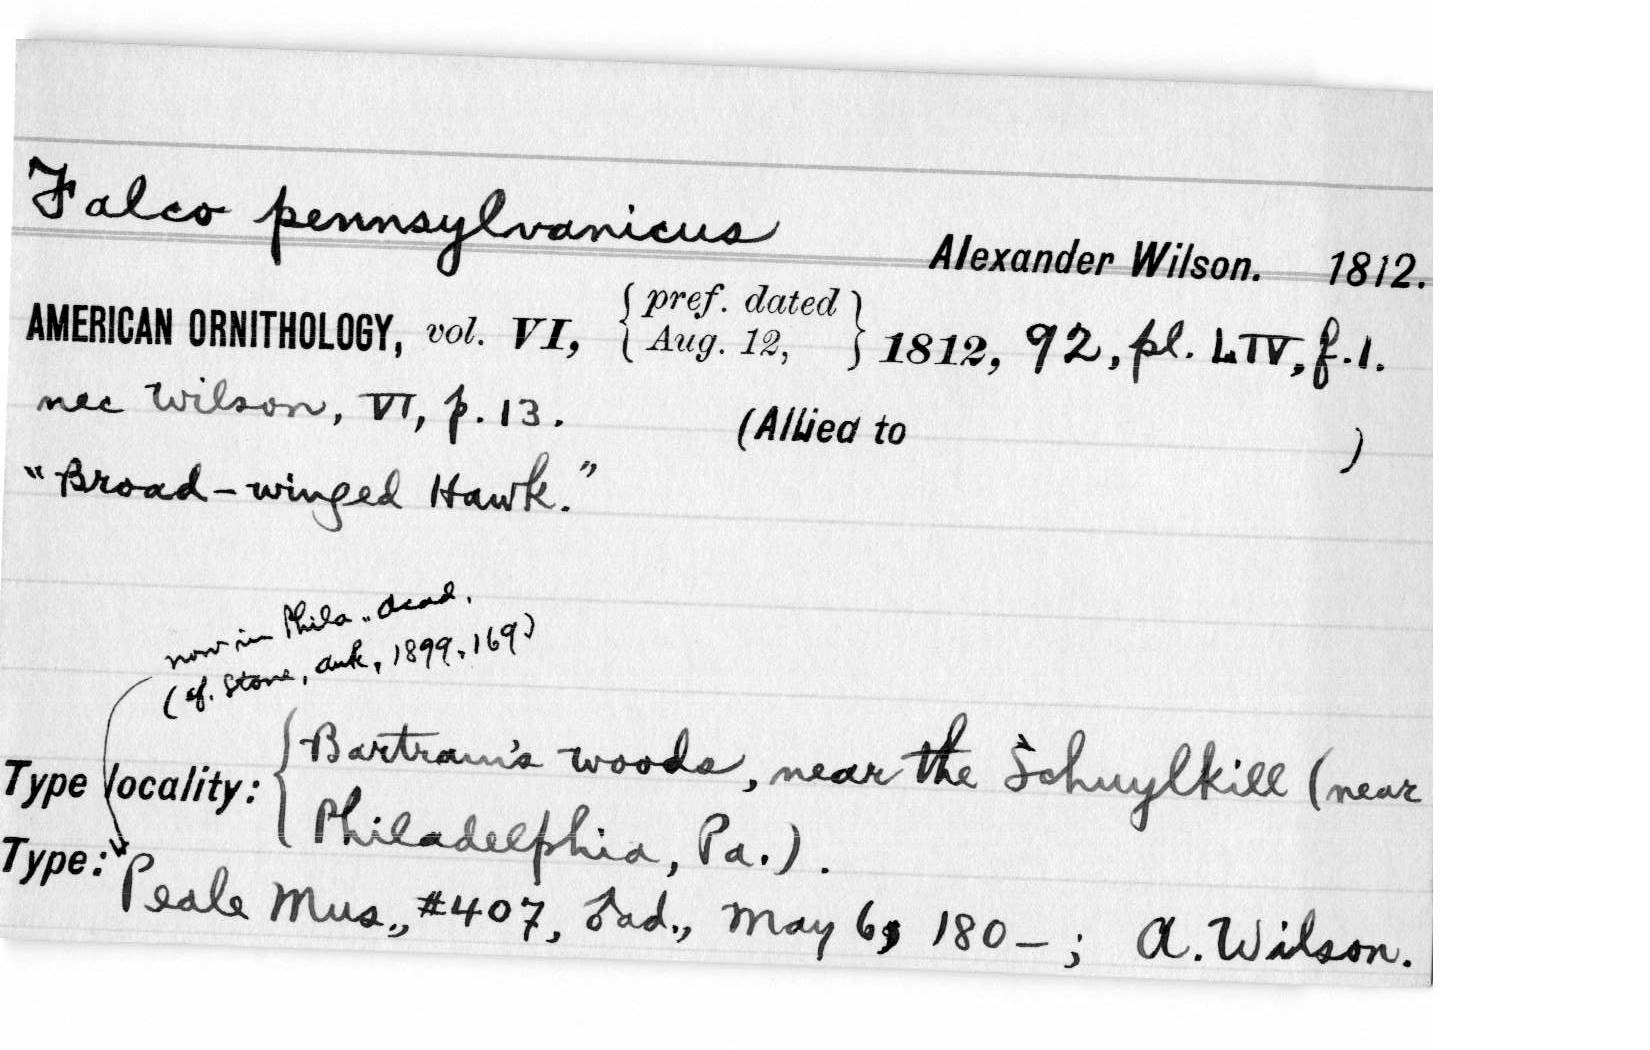 Falco pennsylvanicus
Alexander Wilson. 1812.
AMERICAN ORNITHOLOGY, vol. VI, { pref. dated Aug. 12, } 1812, 92, pl. LIV, f. 1.
nec Wilson, VI, p. 13. (Allied to )
"Broad-winged Hawk."
now in Phila. Acad.
(cf. Stone, Auk, 1899, 169)
Type locality: { Bartram's woods, near the Schuylkill (near
Philadelphia, Pa.).
Type: Peale Mus., #407, ad., May 6, 180–; A. Wilson.